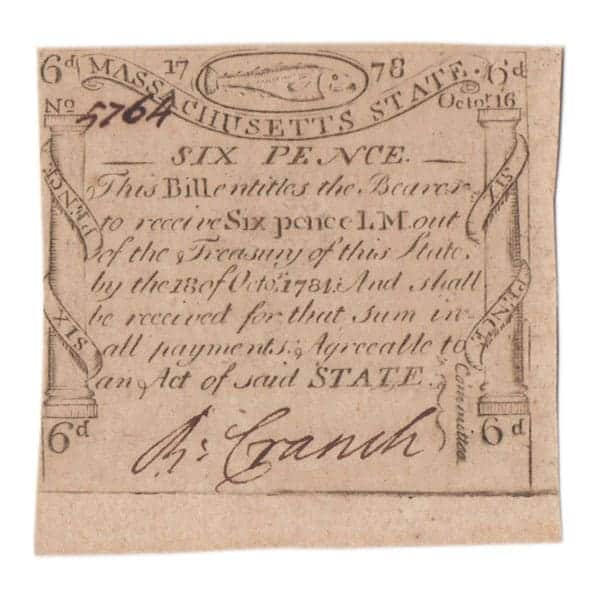 6d 17 78 6d
MASSACHUSETTS STATE.
No 5764 Octor. 16
SIX PENCE.
This Bill entitles the Bearer
to receive Six pence L.M. out
of the Treasury of this State,
by the 18 of Octor. 1784; And shall
be received for that Sum in
all payments, Agreeable to
an Act of said STATE.
SIX PENCE
SIX PENCE
Committee
Rd. Cranch
6d 6d